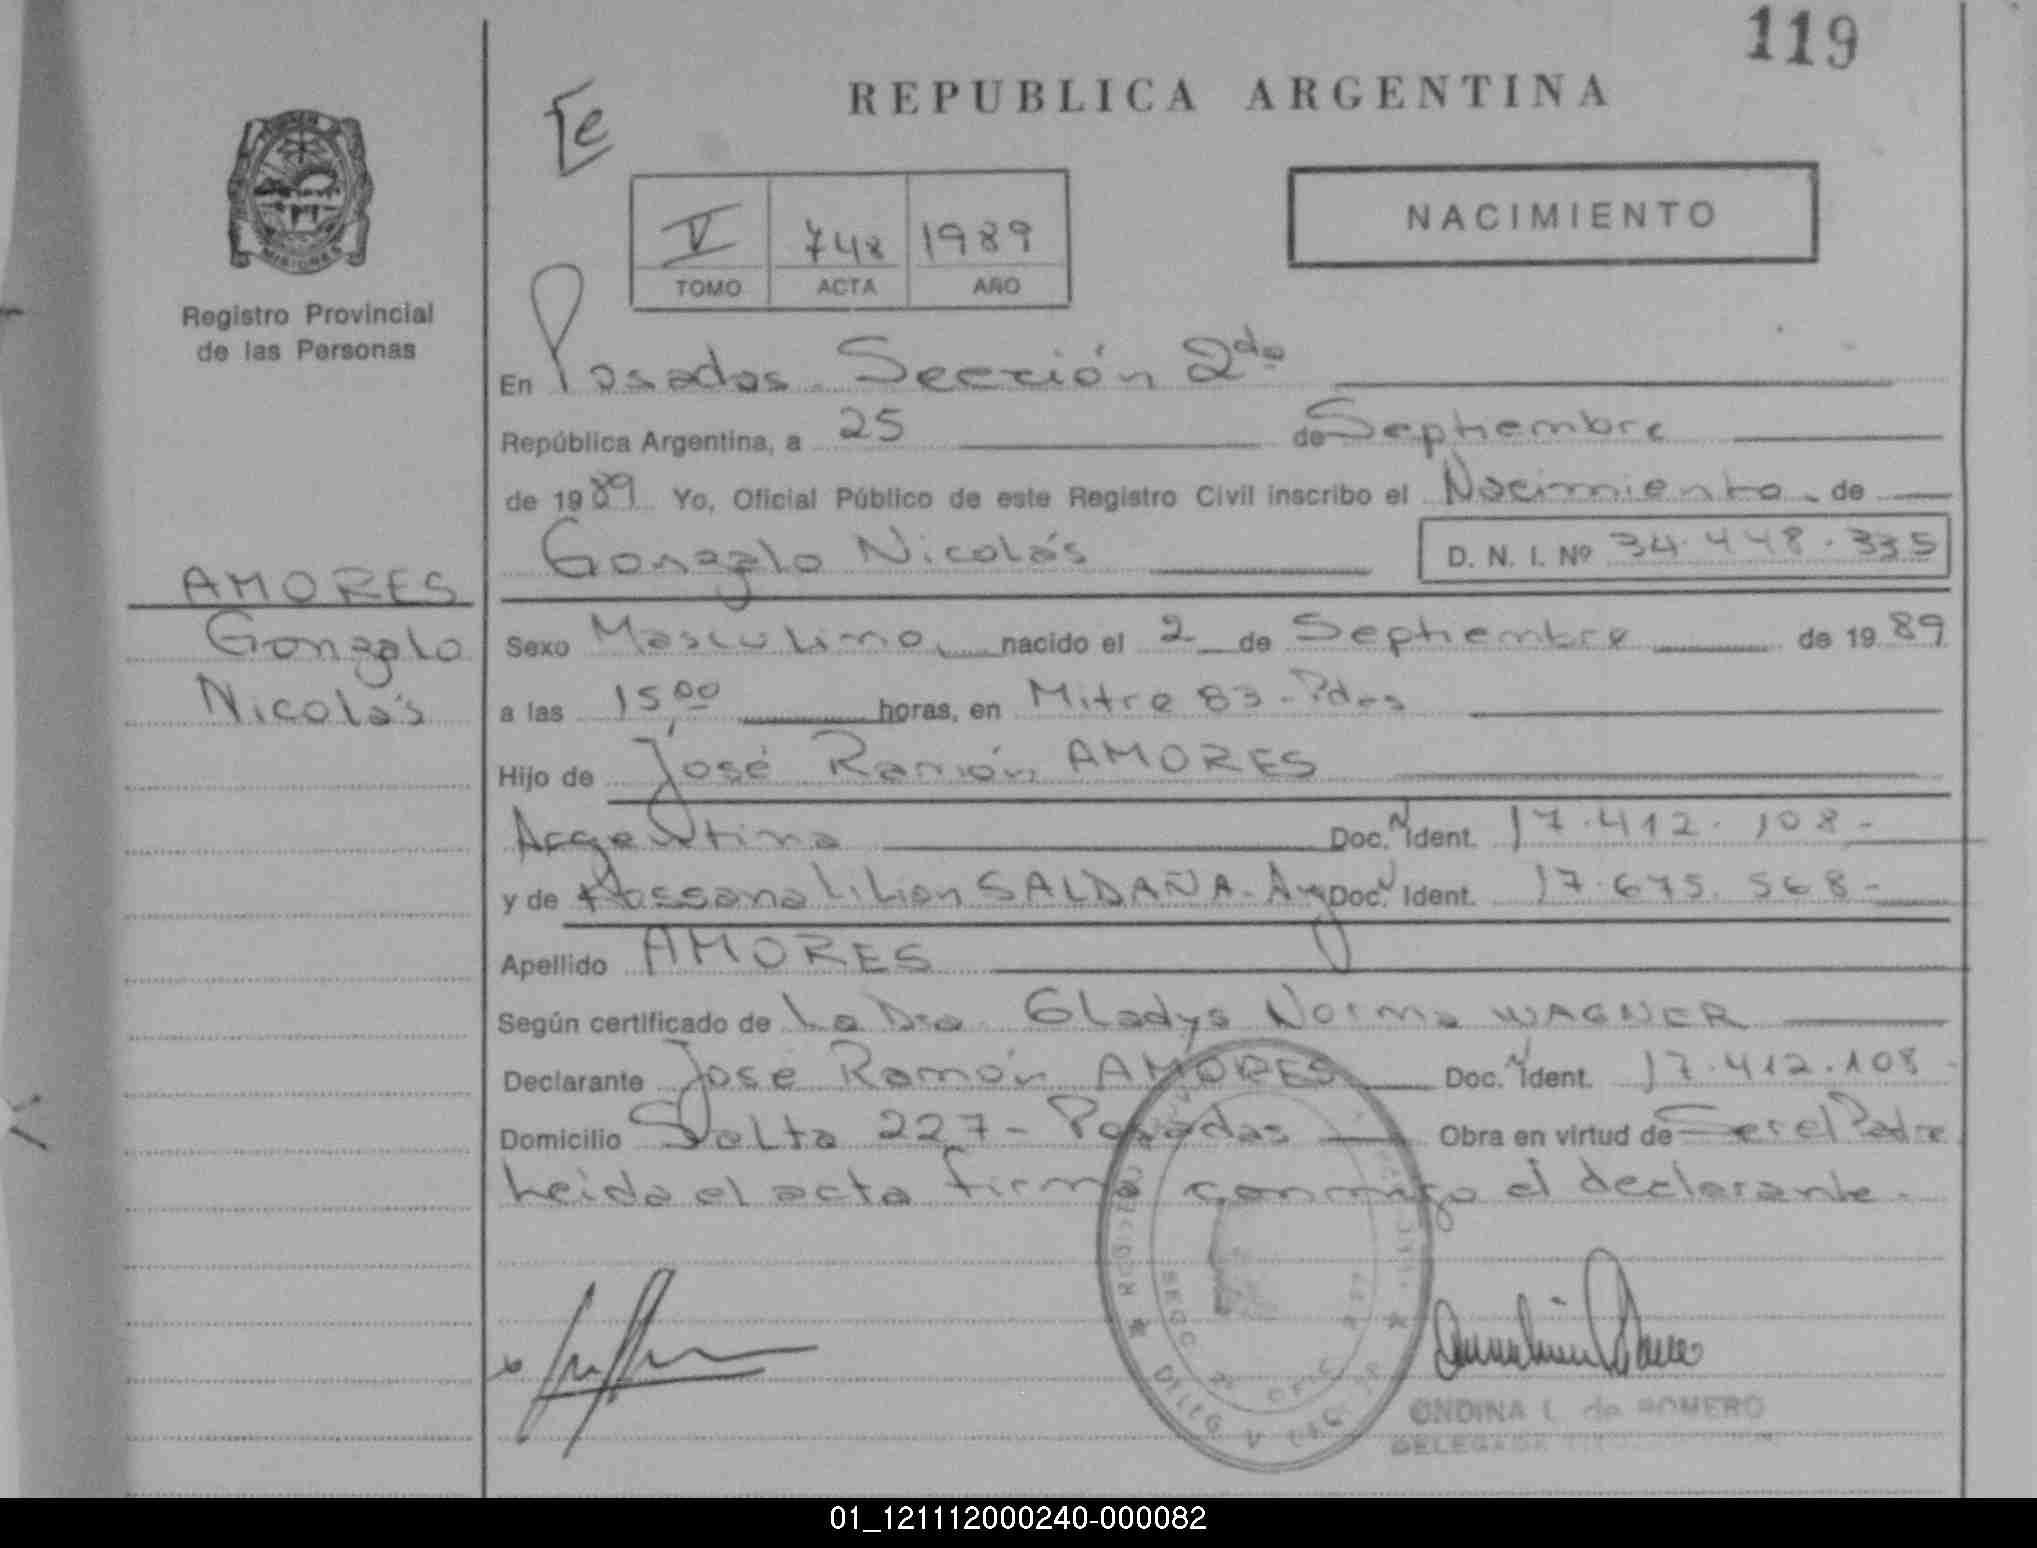 119
REPUBLICA ARGENTINA
NACIMIENTO
V 748 1989
TOMO ACTA AÑO
MISIONES
Registro Provincial
de las Personas
En Posadas - Sección 2da
República Argentina, a 25 de Septiembre
de 1989 Yo, Oficial Público de este Registro Civil inscribo el Nacimiento de
Gonzalo Nicolás D. N. I. Nº 34.448.335
AMORES
Gonzalo
Nicolás
Sexo Masculino nacido el 2 de Septiembre de 1989
a las 15,00 horas, en Mitre 83 - Pdas
Hijo de José Ramón AMORES
Argentina Doc. N Ident. 17.412.108-
y de Rossana Lilian SALDAÑA - Arg Doc. N Ident. 17.675.568-
Apellido AMORES
Según certificado de La Dra Gladys Norma WAGNER
Declarante José Ramón AMORES Doc. N Ident. 17.412.108-
Domicilio Salta 227 - Posadas Obra en virtud de Ser el Padre
Leida el acta firma conmigo el declarante.
ONDINA de ROMERO
01_121112000240-000082